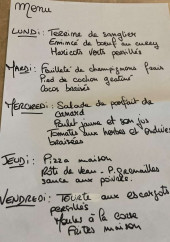 Menu
LUNDI: Terrine de sanglier
Emincé de bœuf au curry
Haricots verts persillés
MARDI: Feuilleté de champignons frais
Pied de cochon gratiné
Cocos braisés
MERCREDI: Salade de parfait de
canard
Poulet jaune et son jus
Tomates aux herbes et endives
braisées
JEUDI: Pizza maison
Rôti de veau - P. grenailles
sauce aux poivre
VENDREDI: Tourte aux escargots
persillés
Moules à la
Frites maison